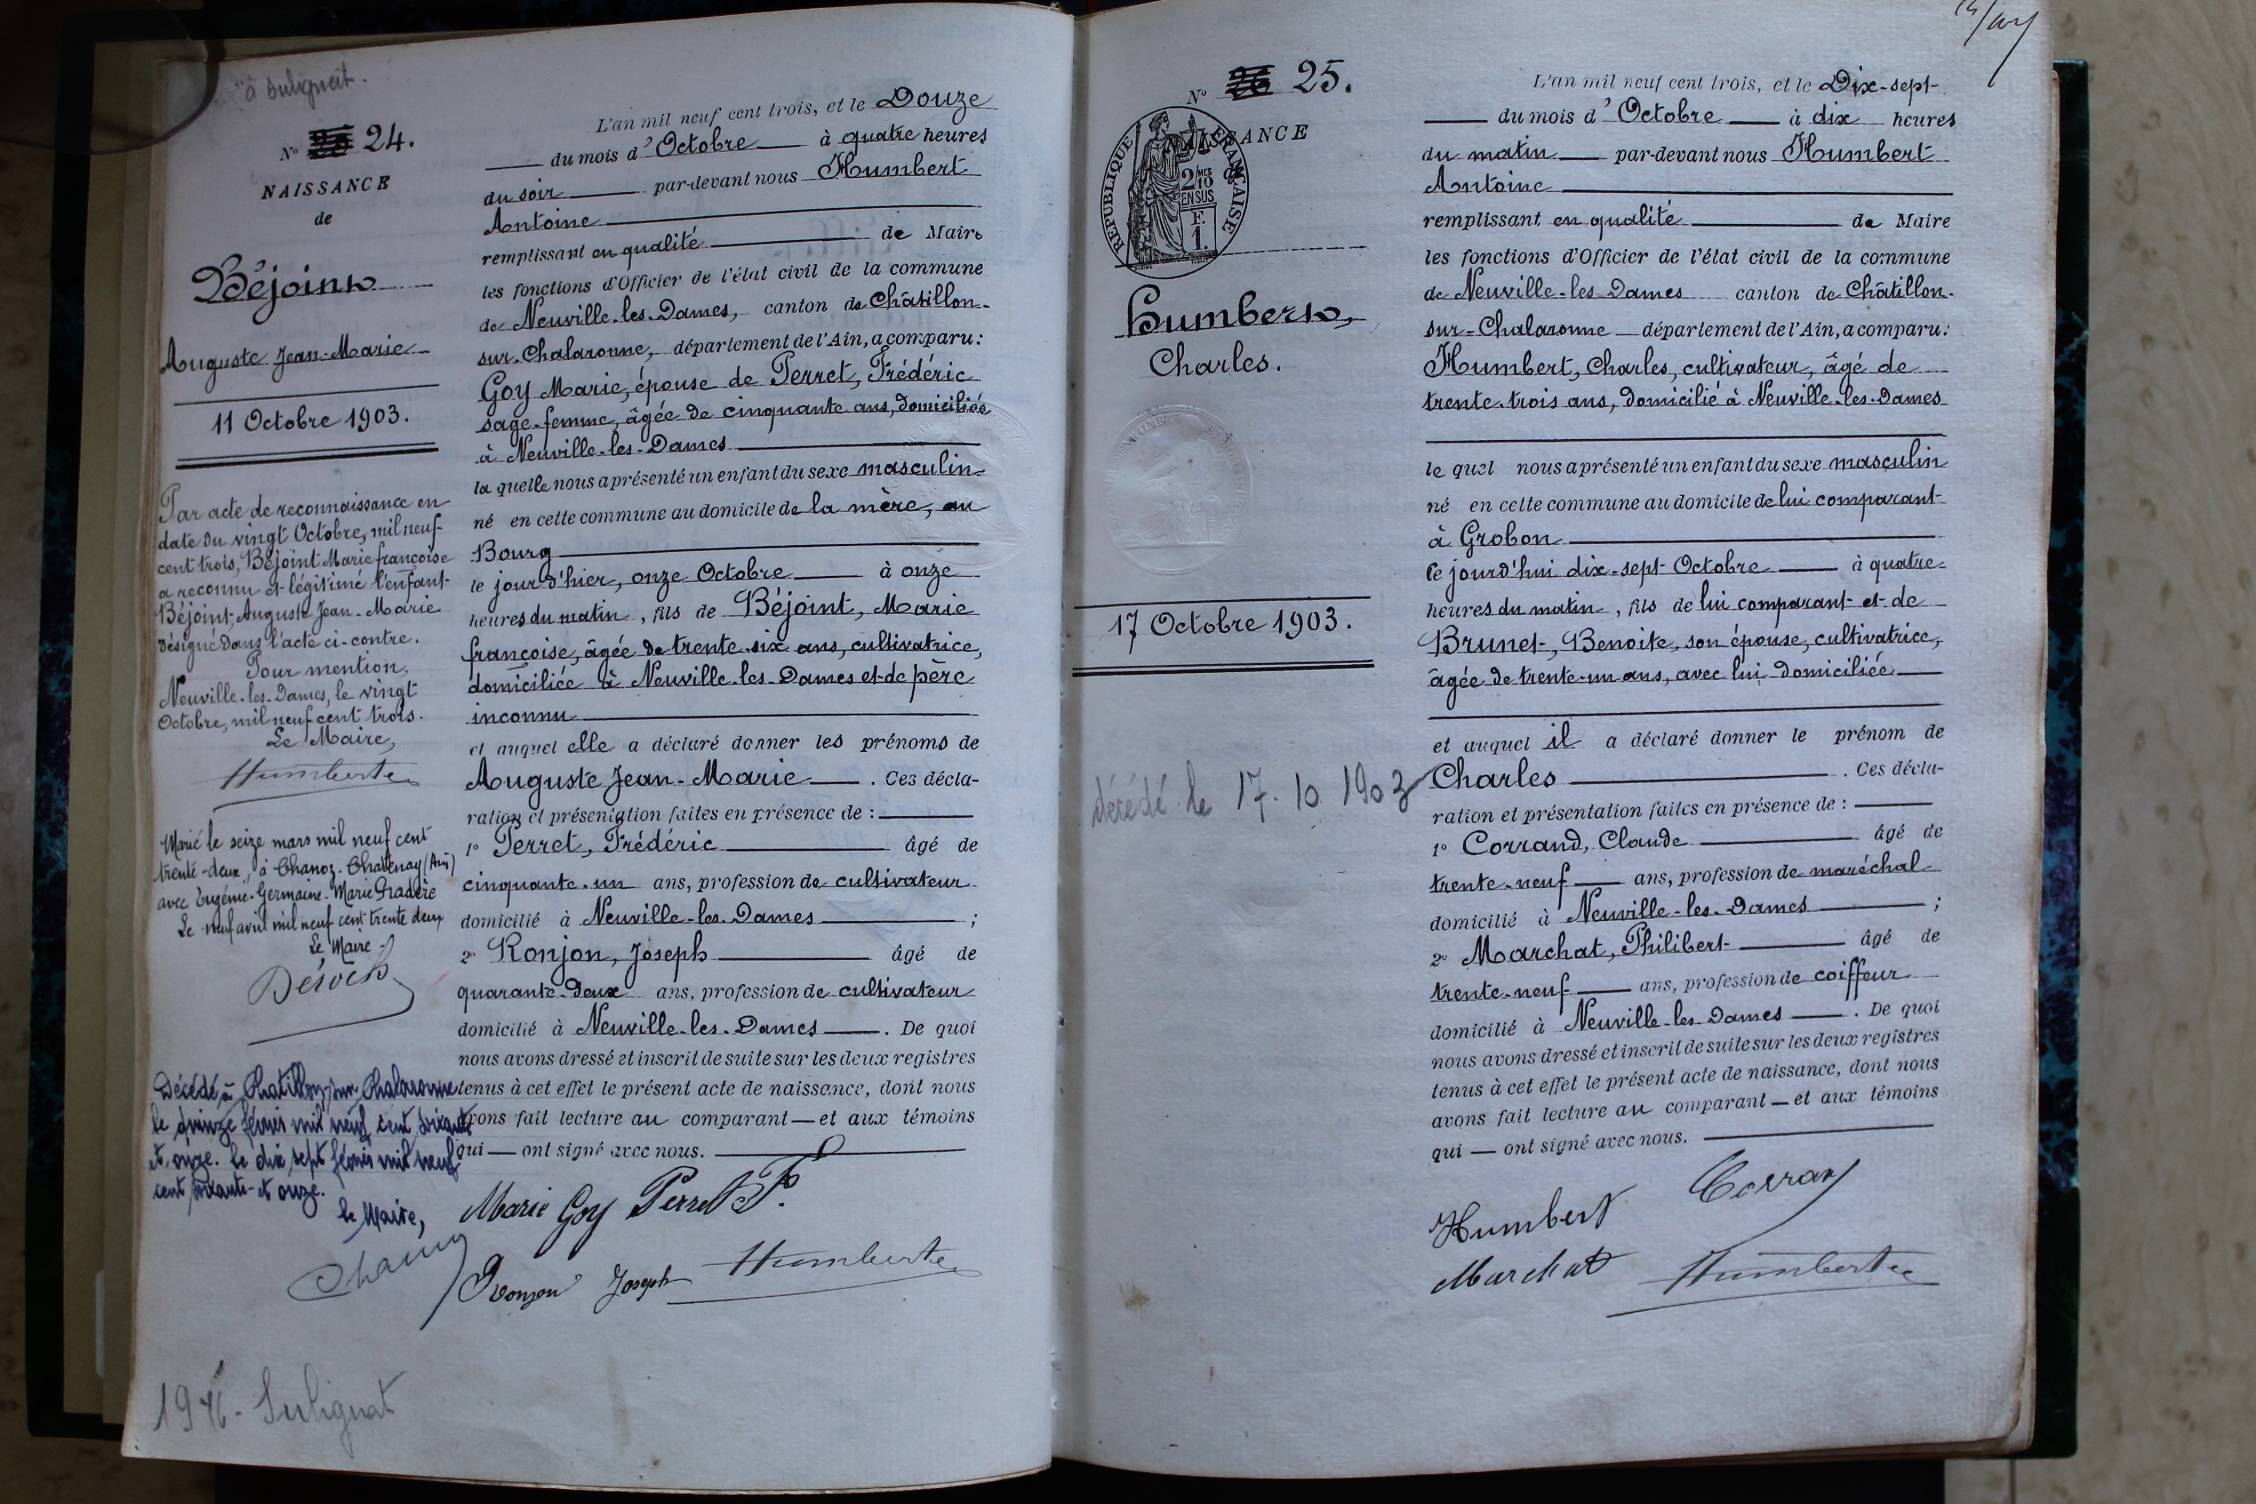 à Sulignat.
N° 24.
NAISSANCE
de
Béjoint
Auguste Jean-Marie
11 Octobre 1903.
Par acte de reconnaissance en
date du vingt Octobre, mil neuf
cent trois, Béjoint Marie françoise
a reconnu et légitimé l'enfant
Béjoint Auguste Jean-Marie
désigné dans l'acte ci-contre.
Pour mention,
Neuville-les-Dames, le vingt
Octobre, mil neuf cent trois.
Le Maire,
Humbert
Marié le seize mars mil neuf cent
trente-deux, à Chanoz-Chatenay (Ain)
avec Eugénie-Germaine-Marie
Le neuf avril mil neuf cent trente deux
Le Maire
Décédé à Chatillon-sur-Chalaronne
le quinze février mil neuf cent soixante
et onze. le dix sept février mil neuf
cent soixante-et onze.
le Maire,
Sulignat
L'an mil neuf cent trois, et le Douze
du mois d'Octobre à quatre heures
du soir par-devant nous Humbert
Antoine
remplissant en qualité de Maire
les fonctions d'Officier de l'état civil de la commune
de Neuville-les-Dames, canton de Châtillon-
sur-Chalaronne, département de l'Ain, a comparu:
Goy Marie, épouse de Perret, Frédéric
sage-femme, âgée de cinquante ans, domiciliée
à Neuville-les-Dames
la quelle nous a présenté un enfant du sexe masculin
né en cette commune au domicile de la mère, au
Bourg
le jour d'hier, onze Octobre à onze
heures du matin, fils de Béjoint, Marie
françoise, âgée de trente-six ans, cultivatrice,
domiciliée à Neuville-les-Dames et de père
inconnu
et auquel elle a déclaré donner les prénoms de
Auguste Jean-Marie. Ces décla-
ration et présentation faites en présence de :
1° Perret, Frédéric âgé de
cinquante-un ans, profession de cultivateur
domicilié à Neuville-les-Dames ;
2° Ronjon, Joseph âgé de
quarante-deux ans, profession de cultivateur
domicilié à Neuville-les-Dames. De quoi
nous avons dressé et inscrit de suite sur les deux registres
tenus à cet effet le présent acte de naissance, dont nous
avons fait lecture au comparant — et aux témoins
qui — ont signé avec nous.
Marie Goy Perret F.
Ronjon Joseph Humbert
N° 25.
NAISSANCE
RÉPUBLIQUE FRANÇAISE
2 MES
10
EN SUS
F.
1.
Humbert,
Charles.
17 Octobre 1903.
décédé le 17.10 1903
L'an mil neuf cent trois, et le Dix-sept
du mois d'Octobre à dix heures
du matin par-devant nous Humbert
Antoine
remplissant en qualité de Maire
les fonctions d'Officier de l'état civil de la commune
de Neuville-les-Dames canton de Châtillon-
sur-Chalaronne département de l'Ain, a comparu:
Humbert, Charles, cultivateur, âgé de
trente-trois ans, domicilié à Neuville-les-Dames
le quel nous a présenté un enfant du sexe masculin
né en cette commune au domicile de lui comparant
à Grobon
ce jourd'hui dix-sept Octobre à quatre
heures du matin, fils de lui comparant et de
Brunet, Benoite, son épouse, cultivatrice,
âgée de trente-un ans, avec lui domiciliée
et auquel il a déclaré donner le prénom de
Charles. Ces décla-
ration et présentation faites en présence de :
1° Corrand, Claude âgé de
trente-neuf ans, profession de maréchal
domicilié à Neuville-les-Dames ;
2° Marchat, Philibert âgé de
trente-neuf ans, profession de coiffeur
domicilié à Neuville-les-Dames. De quoi
nous avons dressé et inscrit de suite sur les deux registres
tenus à cet effet le présent acte de naissance, dont nous
avons fait lecture au comparant — et aux témoins
qui — ont signé avec nous.
Humbert Corrand
Marchat Humbert